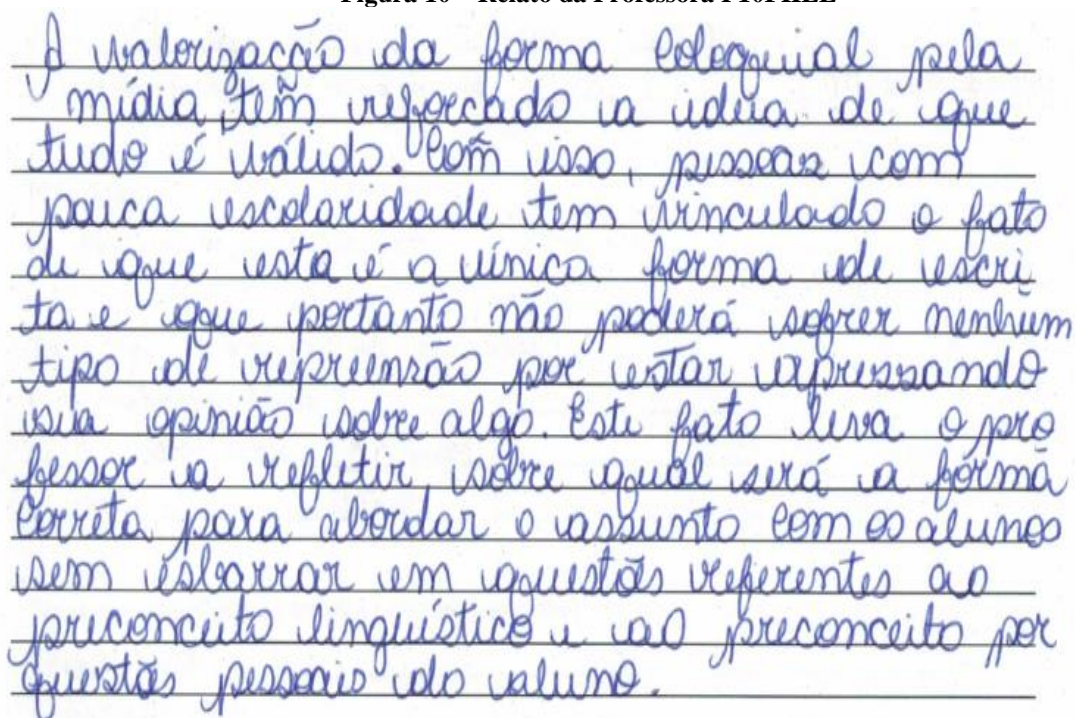 A valorização da forma coloquial pela
mídia, tem reforçado a ideia de que
tudo é válido. Com isso, pessoas com
pouca escolaridade tem vinculado o fato
de que esta é a única forma de escri
ta e que portanto não poderá sofrer nenhum
tipo de repreensão por estar expressando
sua opinião sobre algo. Este fato leva o pro
fessor a refletir sobre qual será a forma
correta para abordar o assunto com os alunos
sem esbarrar em questões referentes ao
preconceito linguístico e ao preconceito por
questões pessoais do aluno.